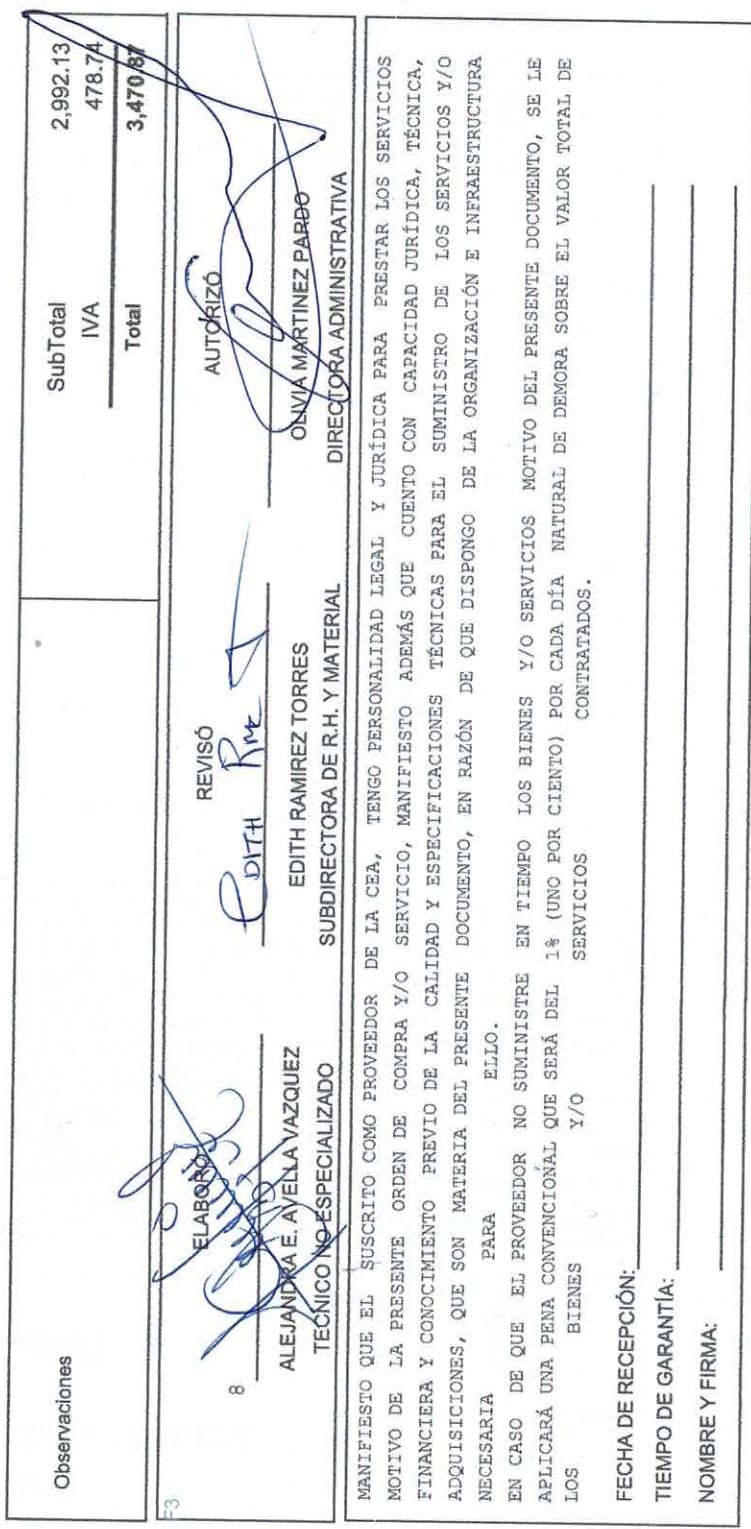 Observaciones
SubTotal 2,992.13
IVA 478.74
Total 3,470.87
F3
8
ELABORÓ
ALEJANDRA E. AVELLA VAZQUEZ
TECNICO NO ESPECIALIZADO
REVISÓ
EDITH RMZ T
EDITH RAMIREZ TORRES
SUBDIRECTORA DE R.H. Y MATERIAL
AUTORIZÓ
OLIVIA MARTINEZ PARDO
DIRECTORA ADMINISTRATIVA
MANIFIESTO QUE EL SUSCRITO COMO PROVEEDOR DE LA CEA, TENGO PERSONALIDAD LEGAL Y JURÍDICA PARA PRESTAR LOS SERVICIOS
MOTIVO DE LA PRESENTE ORDEN DE COMPRA Y/O SERVICIO, MANIFIESTO ADEMÁS QUE CUENTO CON CAPACIDAD JURÍDICA, TÉCNICA,
FINANCIERA Y CONOCIMIENTO PREVIO DE LA CALIDAD Y ESPECIFICACIONES TÉCNICAS PARA EL SUMINISTRO DE LOS SERVICIOS Y/O
ADQUISICIONES, QUE SON MATERIA DEL PRESENTE DOCUMENTO, EN RAZÓN DE QUE DISPONGO DE LA ORGANIZACIÓN E INFRAESTRUCTURA
NECESARIA PARA ELLO.
EN CASO DE QUE EL PROVEEDOR NO SUMINISTRE EN TIEMPO LOS BIENES Y/O SERVICIOS MOTIVO DEL PRESENTE DOCUMENTO, SE LE
APLICARÁ UNA PENA CONVENCIONAL QUE SERÁ DEL 1% (UNO POR CIENTO) POR CADA DÍA NATURAL DE DEMORA SOBRE EL VALOR TOTAL DE
LOS BIENES Y/O SERVICIOS CONTRATADOS.
FECHA DE RECEPCIÓN:
TIEMPO DE GARANTÍA:
NOMBRE Y FIRMA: